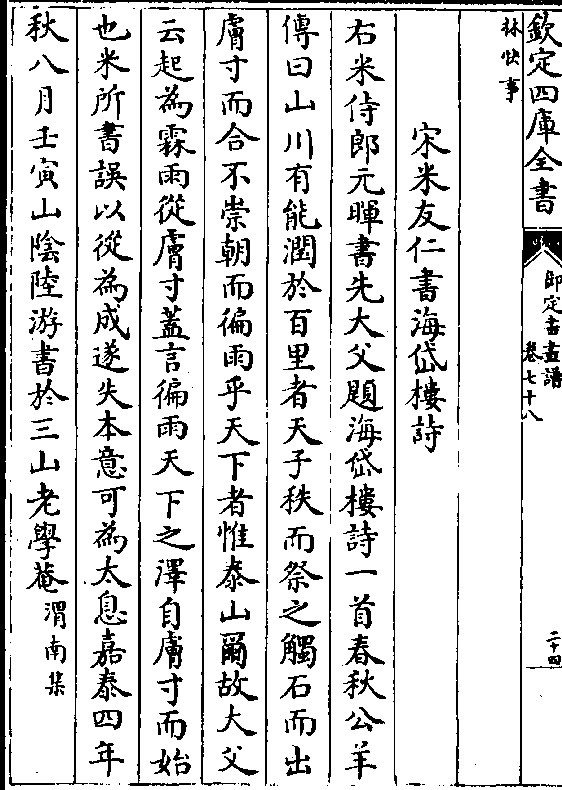 欽定四庫全書
御定書畫譜
卷七十八
二十四
林快事
宋米友仁書海岱樓詩
右米侍郎元暉書先大父題海岱樓詩一首春秋公羊
傳曰山川有能潤於百里者天子秩而祭之觸石而出
膚寸而合不崇朝而徧雨乎天下者惟泰山爾故大父
云起為霖雨從膚寸蓋言徧雨天下之澤自膚寸而始
也米所書誤以從為成遂失本意可為太息嘉泰四年
秋八月壬寅山陰陸游書於三山老學菴渭南集